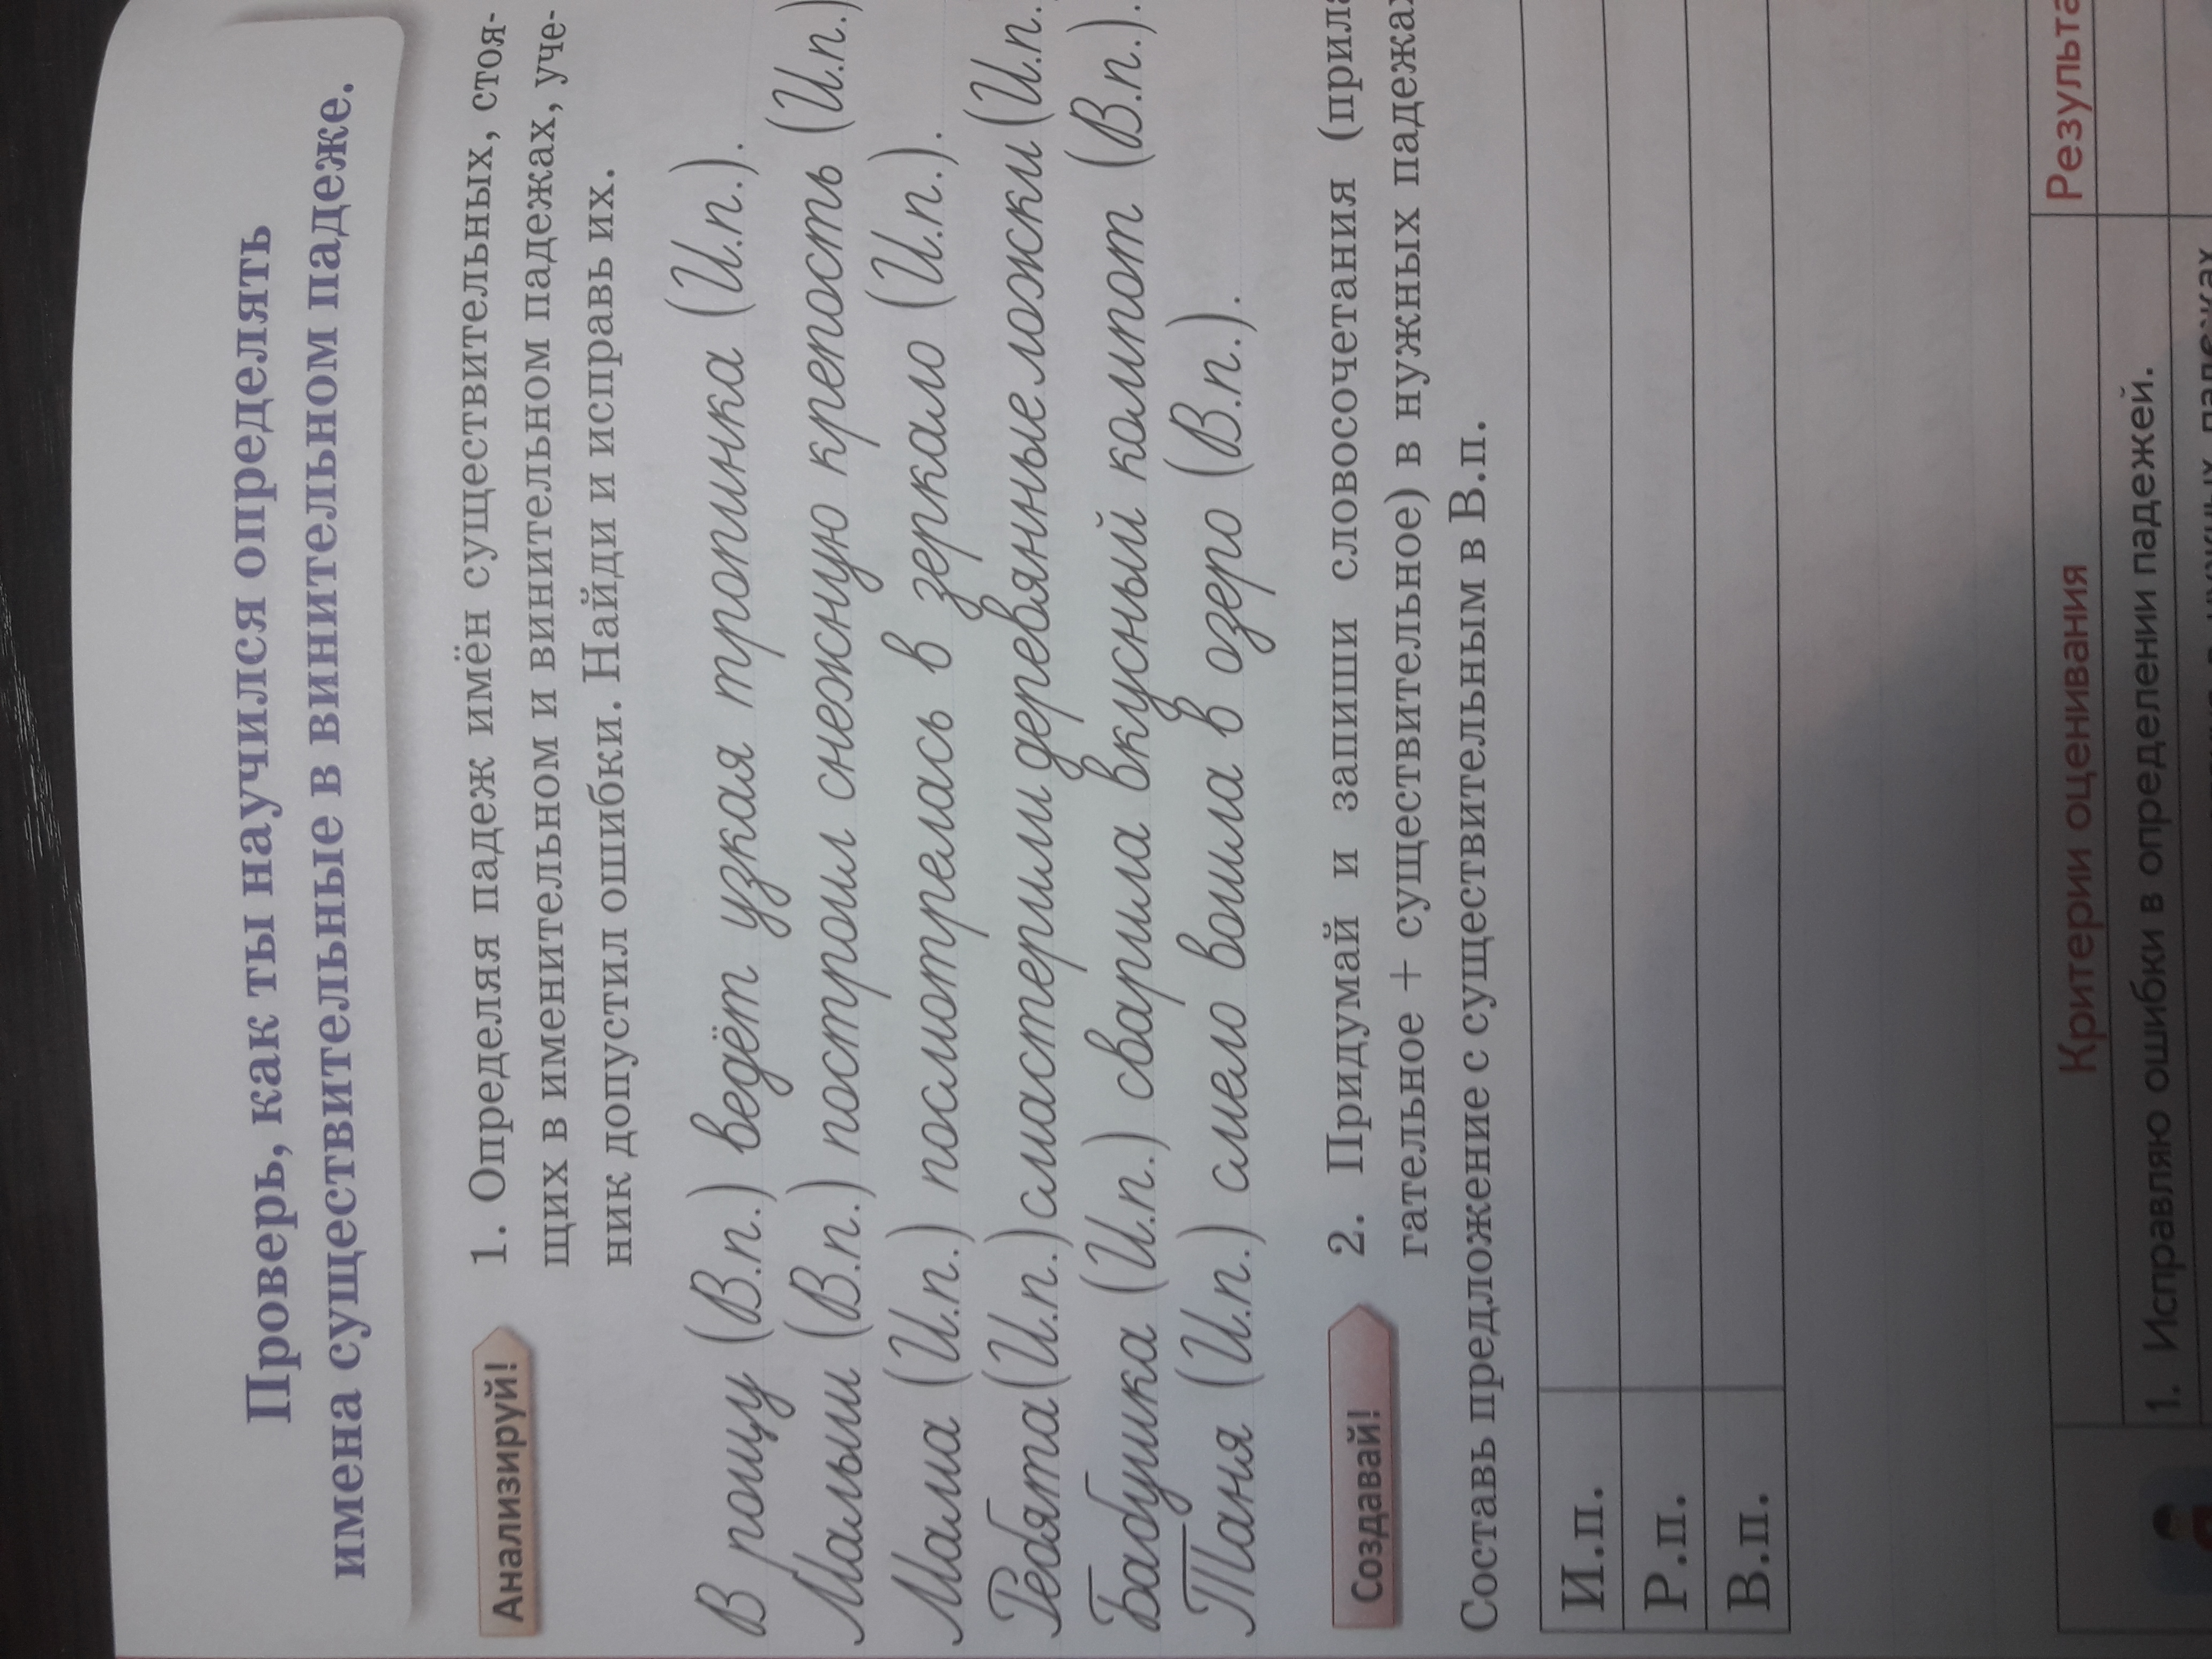 Проверь, как ты научился определять
имена существительные в винительном падеже.
Анализируй!
1. Определяя падеж имён существительных, стоя-
щих в именительном и винительном падежах, уче-
ник допустил ошибки. Найди и исправь их.
В рощу (В.п.) ведёт узкая тропинка (И.п.).
Малыш (В.п.) построил снежную крепость (И.п.)
Мама (И.п.) посмотрелась в зеркало (И.п.).
Ребята (И.п.) смастерили деревянные ложки (И.п.
Бабушка (И.п.) сварила вкусный компот (В.п.).
Таня (И.п.) смело вошла в озеро (В.п.).
Создавай!
2. Придумай и запиши словосочетания (прила
гательное + существительное) в нужных падежах
Составь предложение с существительным в В.п.
И.п.
Р.п.
В.п.
Критерии оценивания
Результа
1. Исправляю ошибки в определении падежей.